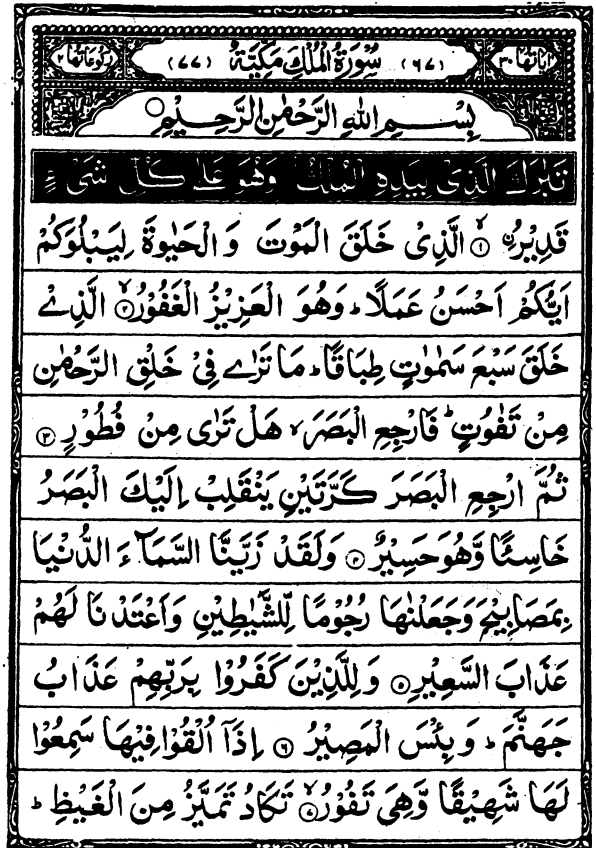 اٰیَاتُهَا ۳۰ (۶۷) سُوْرَةُ الْمُلْكِ مَكِّيَّةٌ (۷۷) رُكُوْعَاتُهَا ۲
بِسْمِ اللهِ الرَّحْمٰنِ الرَّحِيْمِ
تَبٰرَكَ الَّذِيْ بِيَدِهِ الْمُلْكُ وَهُوَ عَلٰى كُلِّ شَيْءٍ
قَدِيْرُ ۨ ۙ۝۱ الَّذِيْ خَلَقَ الْمَوْتَ وَالْحَيٰوةَ لِيَبْلُوَكُمْ
اَيُّكُمْ اَحْسَنُ عَمَلًا ؕ وَهُوَ الْعَزِيْزُ الْغَفُوْرُ ۙ۝۲ الَّذِيْ
خَلَقَ سَبْعَ سَمٰوٰتٍ طِبَاقًا ؕ مَا تَرٰى فِيْ خَلْقِ الرَّحْمٰنِ
مِنْ تَفٰوُتٍ ؕ فَارْجِعِ الْبَصَرَ ۙ هَلْ تَرٰى مِنْ فُطُوْرٍ ۝۳
ثُمَّ ارْجِعِ الْبَصَرَ كَرَّتَيْنِ يَنْقَلِبْ اِلَيْكَ الْبَصَرُ
خَاسِئًا وَّهُوَ حَسِيْرٌ ۝۴ وَلَقَدْ زَيَّنَّا السَّمَآءَ الدُّنْيَا
بِمَصَابِيْحَ وَجَعَلْنٰهَا رُجُوْمًا لِّلشَّيٰطِيْنِ وَاَعْتَدْنَا لَهُمْ
عَذَابَ السَّعِيْرِ ۝۵ وَلِلَّذِيْنَ كَفَرُوْا بِرَبِّهِمْ عَذَابُ
جَهَنَّمَ ؕ وَبِئْسَ الْمَصِيْرُ ۝۶ اِذَآ اُلْقُوْا فِيْهَا سَمِعُوْا
لَهَا شَهِيْقًا وَّهِيَ تَفُوْرُ ۙ۝۷ تَكَادُ تَمَيَّزُ مِنَ الْغَيْظِ ؕ